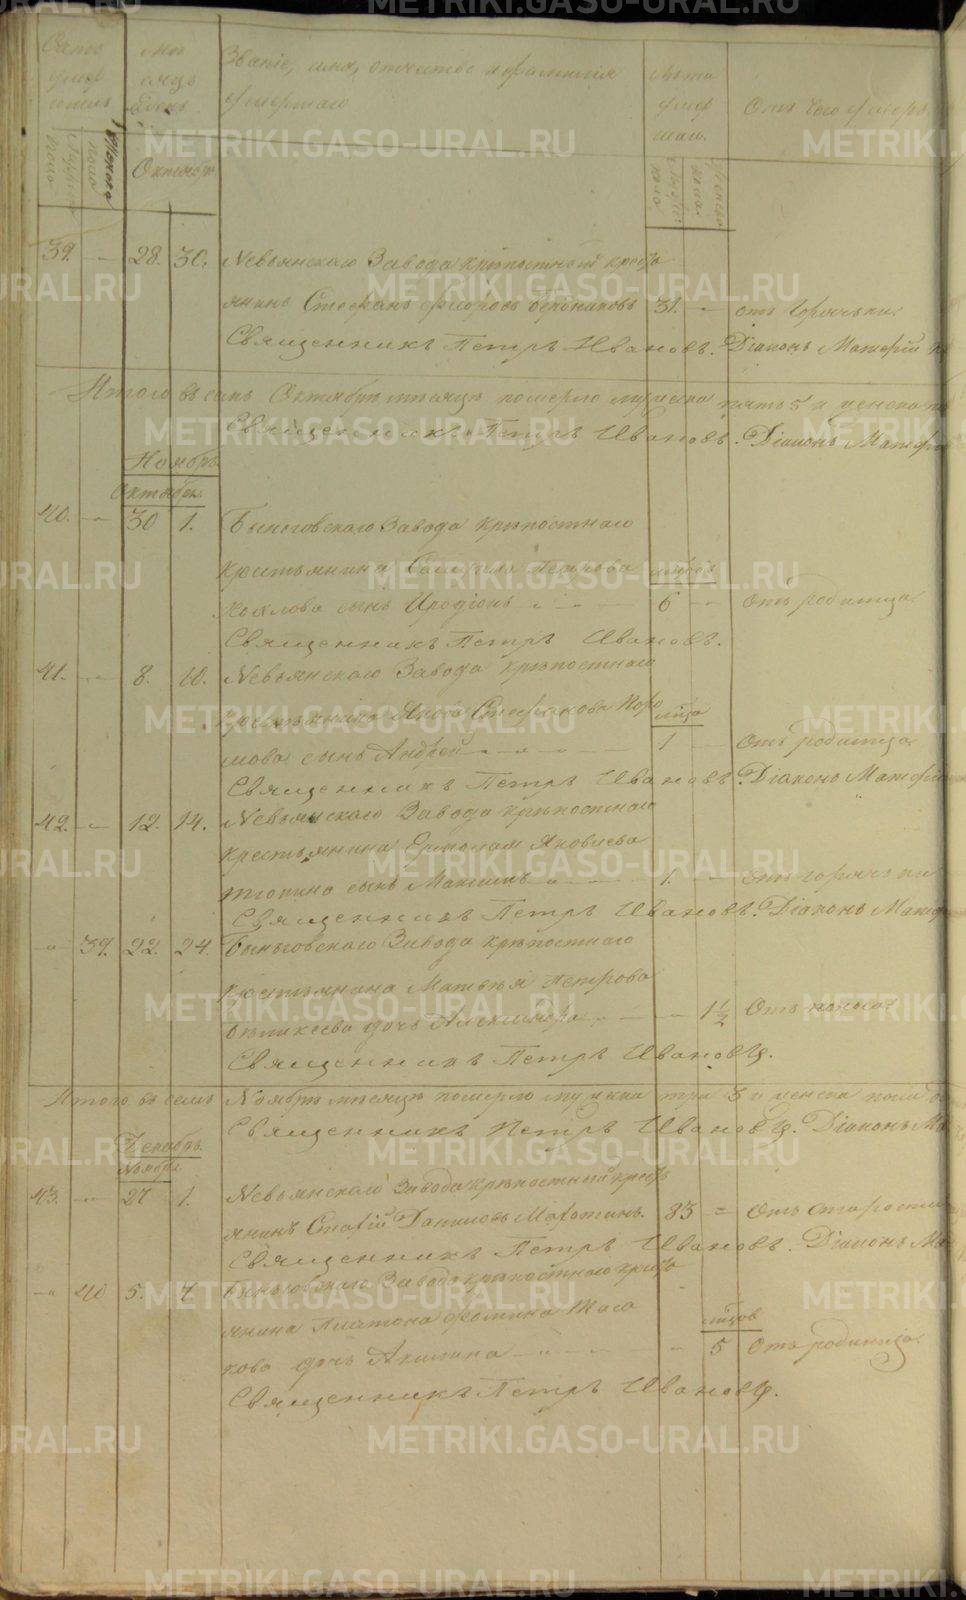 METRIKI.GASO-URAL.RU
Счетъ умершихъ
Мѣсяцъ и день
Званіе, имя, отчество и фамилія умершаго
Лѣта умершаго.
Отъ чего умеръ
Мужеска пола
Женска пола
Октябрь.
39. — 28. 30. Невьянскаго Завода крѣпостный кресть
янинъ Стефанъ Федоровъ 31. — отъ горячьки.
Священникъ Петръ Ивановъ. Діаконъ Матфій
Итого въ семъ Октябрѣ мѣсяцѣ померло мужеска пять 5 и женска
Священникъ Петръ Ивановъ. Діаконъ Матфій
Ноябрь.
Октября.
40. — 30 1. Быньговскаго Завода крѣпостнаго
крестьянина Петрова мѣсяцовъ
Козлова сынъ Иродіонъ — 6 — Отъ родимца.
Священникъ Петръ Ивановъ.
41. — 8. 10. Невьянскаго Завода крѣпостнаго
крестьянина Якова Стефанова мѣсяца
сынъ Андрей — 1 — Отъ родимца.
Священникъ Петръ Ивановъ. Діаконъ Матфій
42. — 12. 14. Невьянскаго Завода крѣпостнаго
крестьянина Ермолая Яковлева
сынъ Максимъ — 1. — отъ горячьки
Священникъ Петръ Ивановъ. Діаконъ Матфій
— 39. 22. 24. Быньговскаго Завода крѣпостнаго
крестьянина Матвѣя Петрова
дочь Александра — 1 1/2 Отъ поноса.
Священникъ Петръ Ивановъ.
Итого въ семъ Ноябрѣ мѣсяцѣ померло мужеска три 3 и женска пола
Священникъ Петръ Ивановъ. Діаконъ Ма
Декабрь.
Ноября
43. — 27 1. Невьянскаго Завода крѣпостный кресть
янинъ Даниловъ 83 = Отъ старости
Священникъ Петръ Ивановъ. Діаконъ Ма
— 40 5. 7. Быньговскаго Завода крѣпостнаго кресть
янина Платона Фомина мѣсяцов
кова дочь Акилина — 5 Отъ родимца.
Священникъ Петръ Ивановъ.